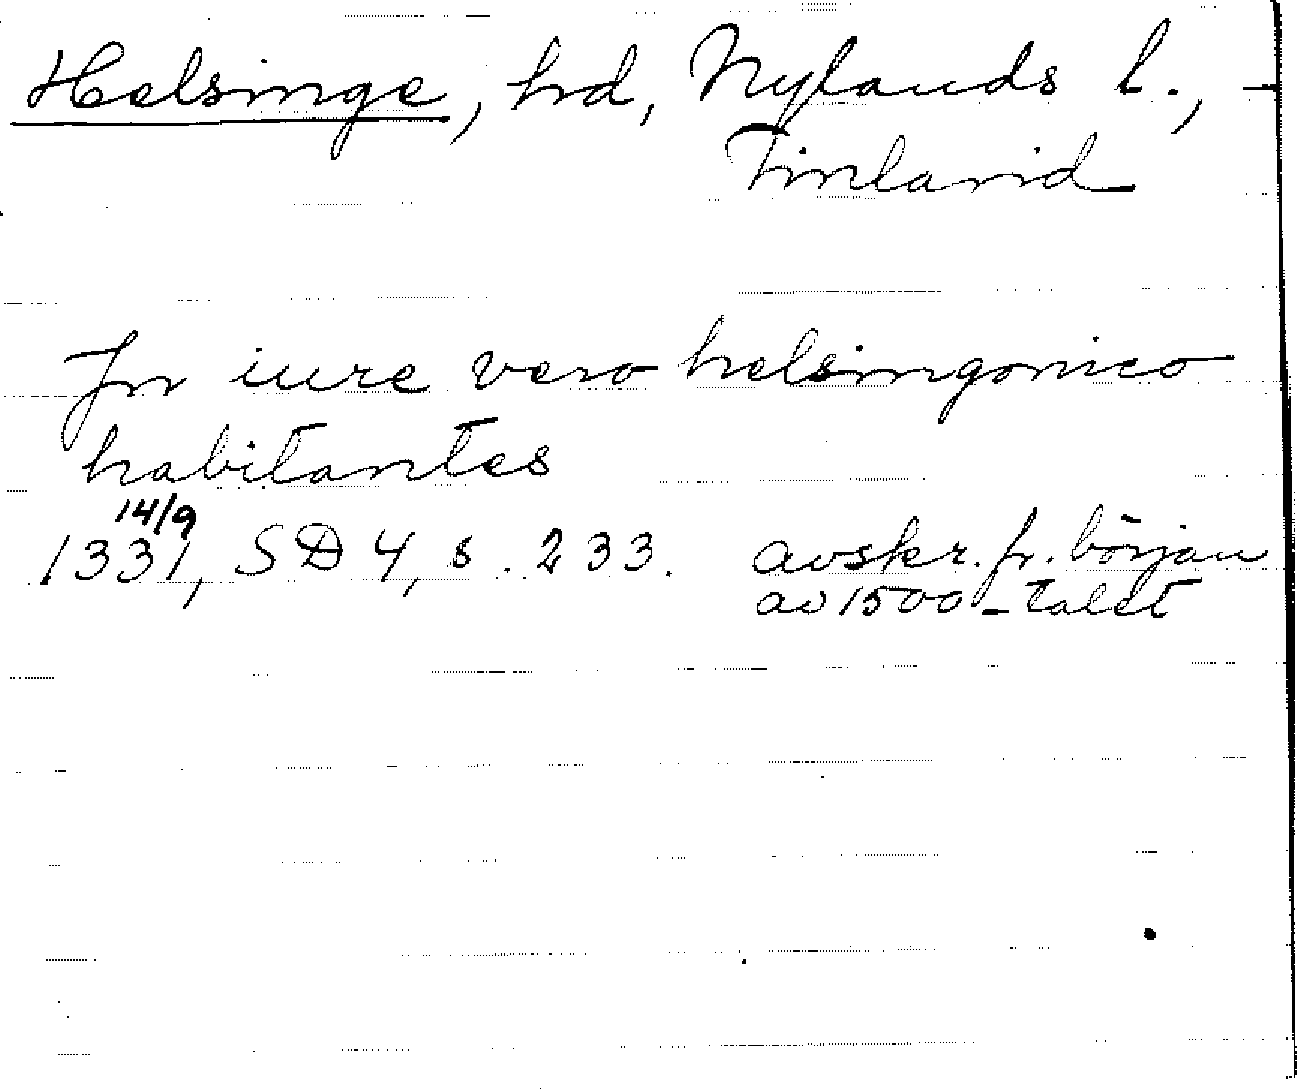 Helsinge, hd, Nylands l., -
Finland
In iure vero helsingonico
habitantes
14/9
1331, SD 4, s. 233. avskr. fr. början
av 1500-talet